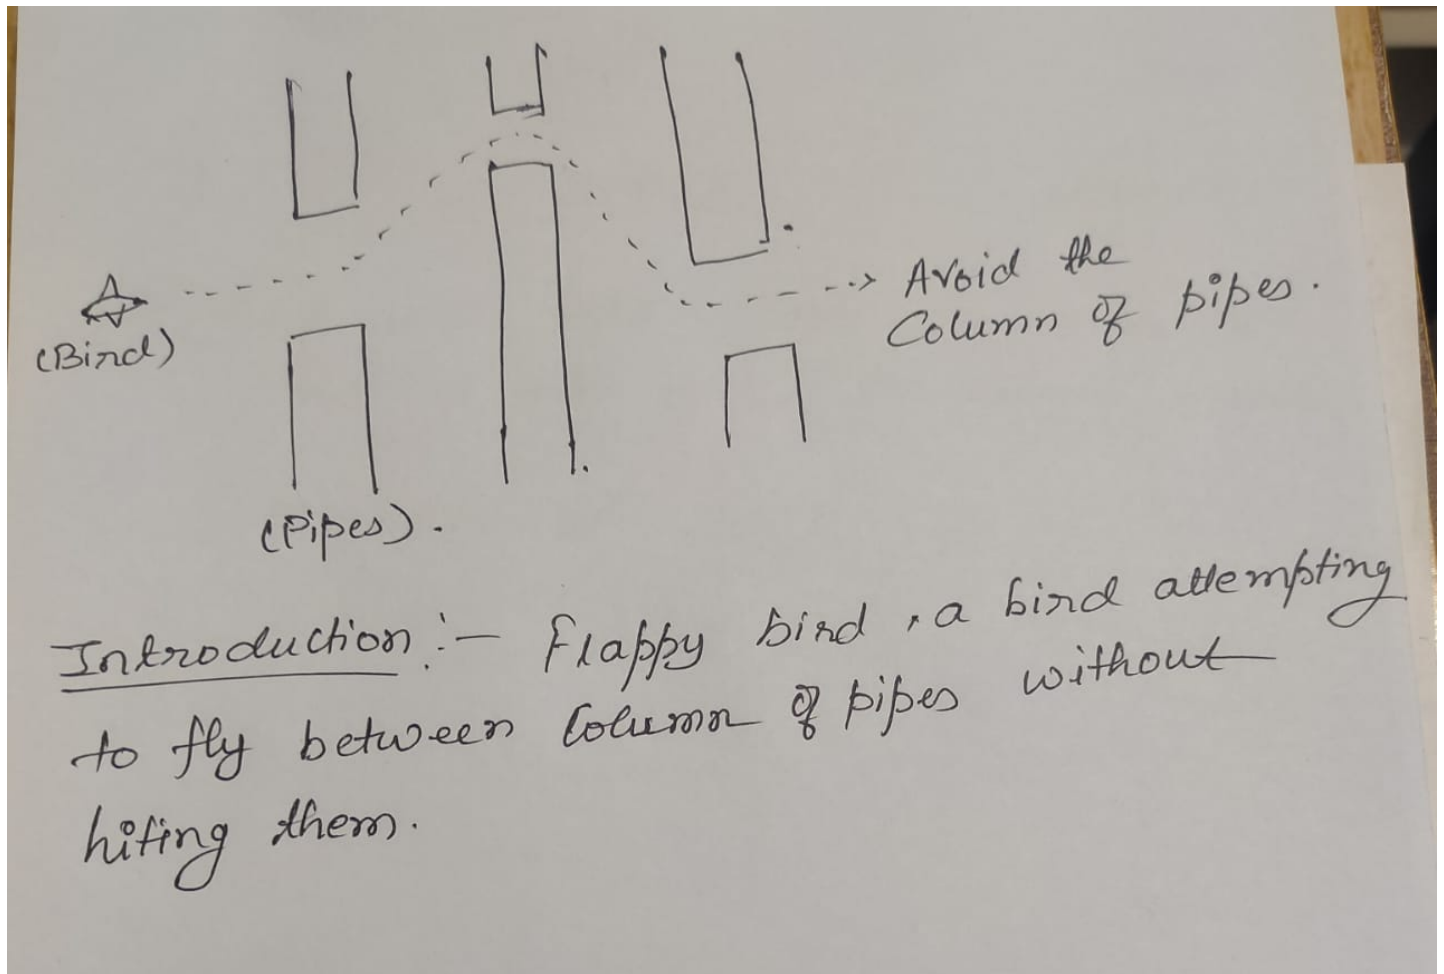 (Bird)
Avoid the
Column of pipes.
(Pipes).
Introduction :- Flappy bird, a bird attempting
to fly between Column of pipes without
hiting them.